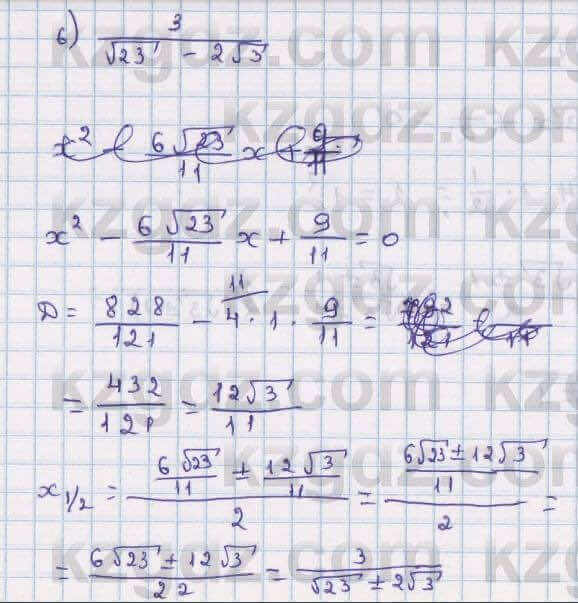 б) 3/(√23 - 2√3)
x² - (6√23)/11 x + 9/11 = 0
D = 828/121 - 4 · 1 · 9/11 =
11
= 432/121 = 12√3/11
x₁/₂ = (6√23/11 ± 12√3/11)/2 = ((6√23 ± 12√3)/11)/2 =
= (6√23 ± 12√3)/22 = 3/(√23 ± 2√3)
kzgdz.com